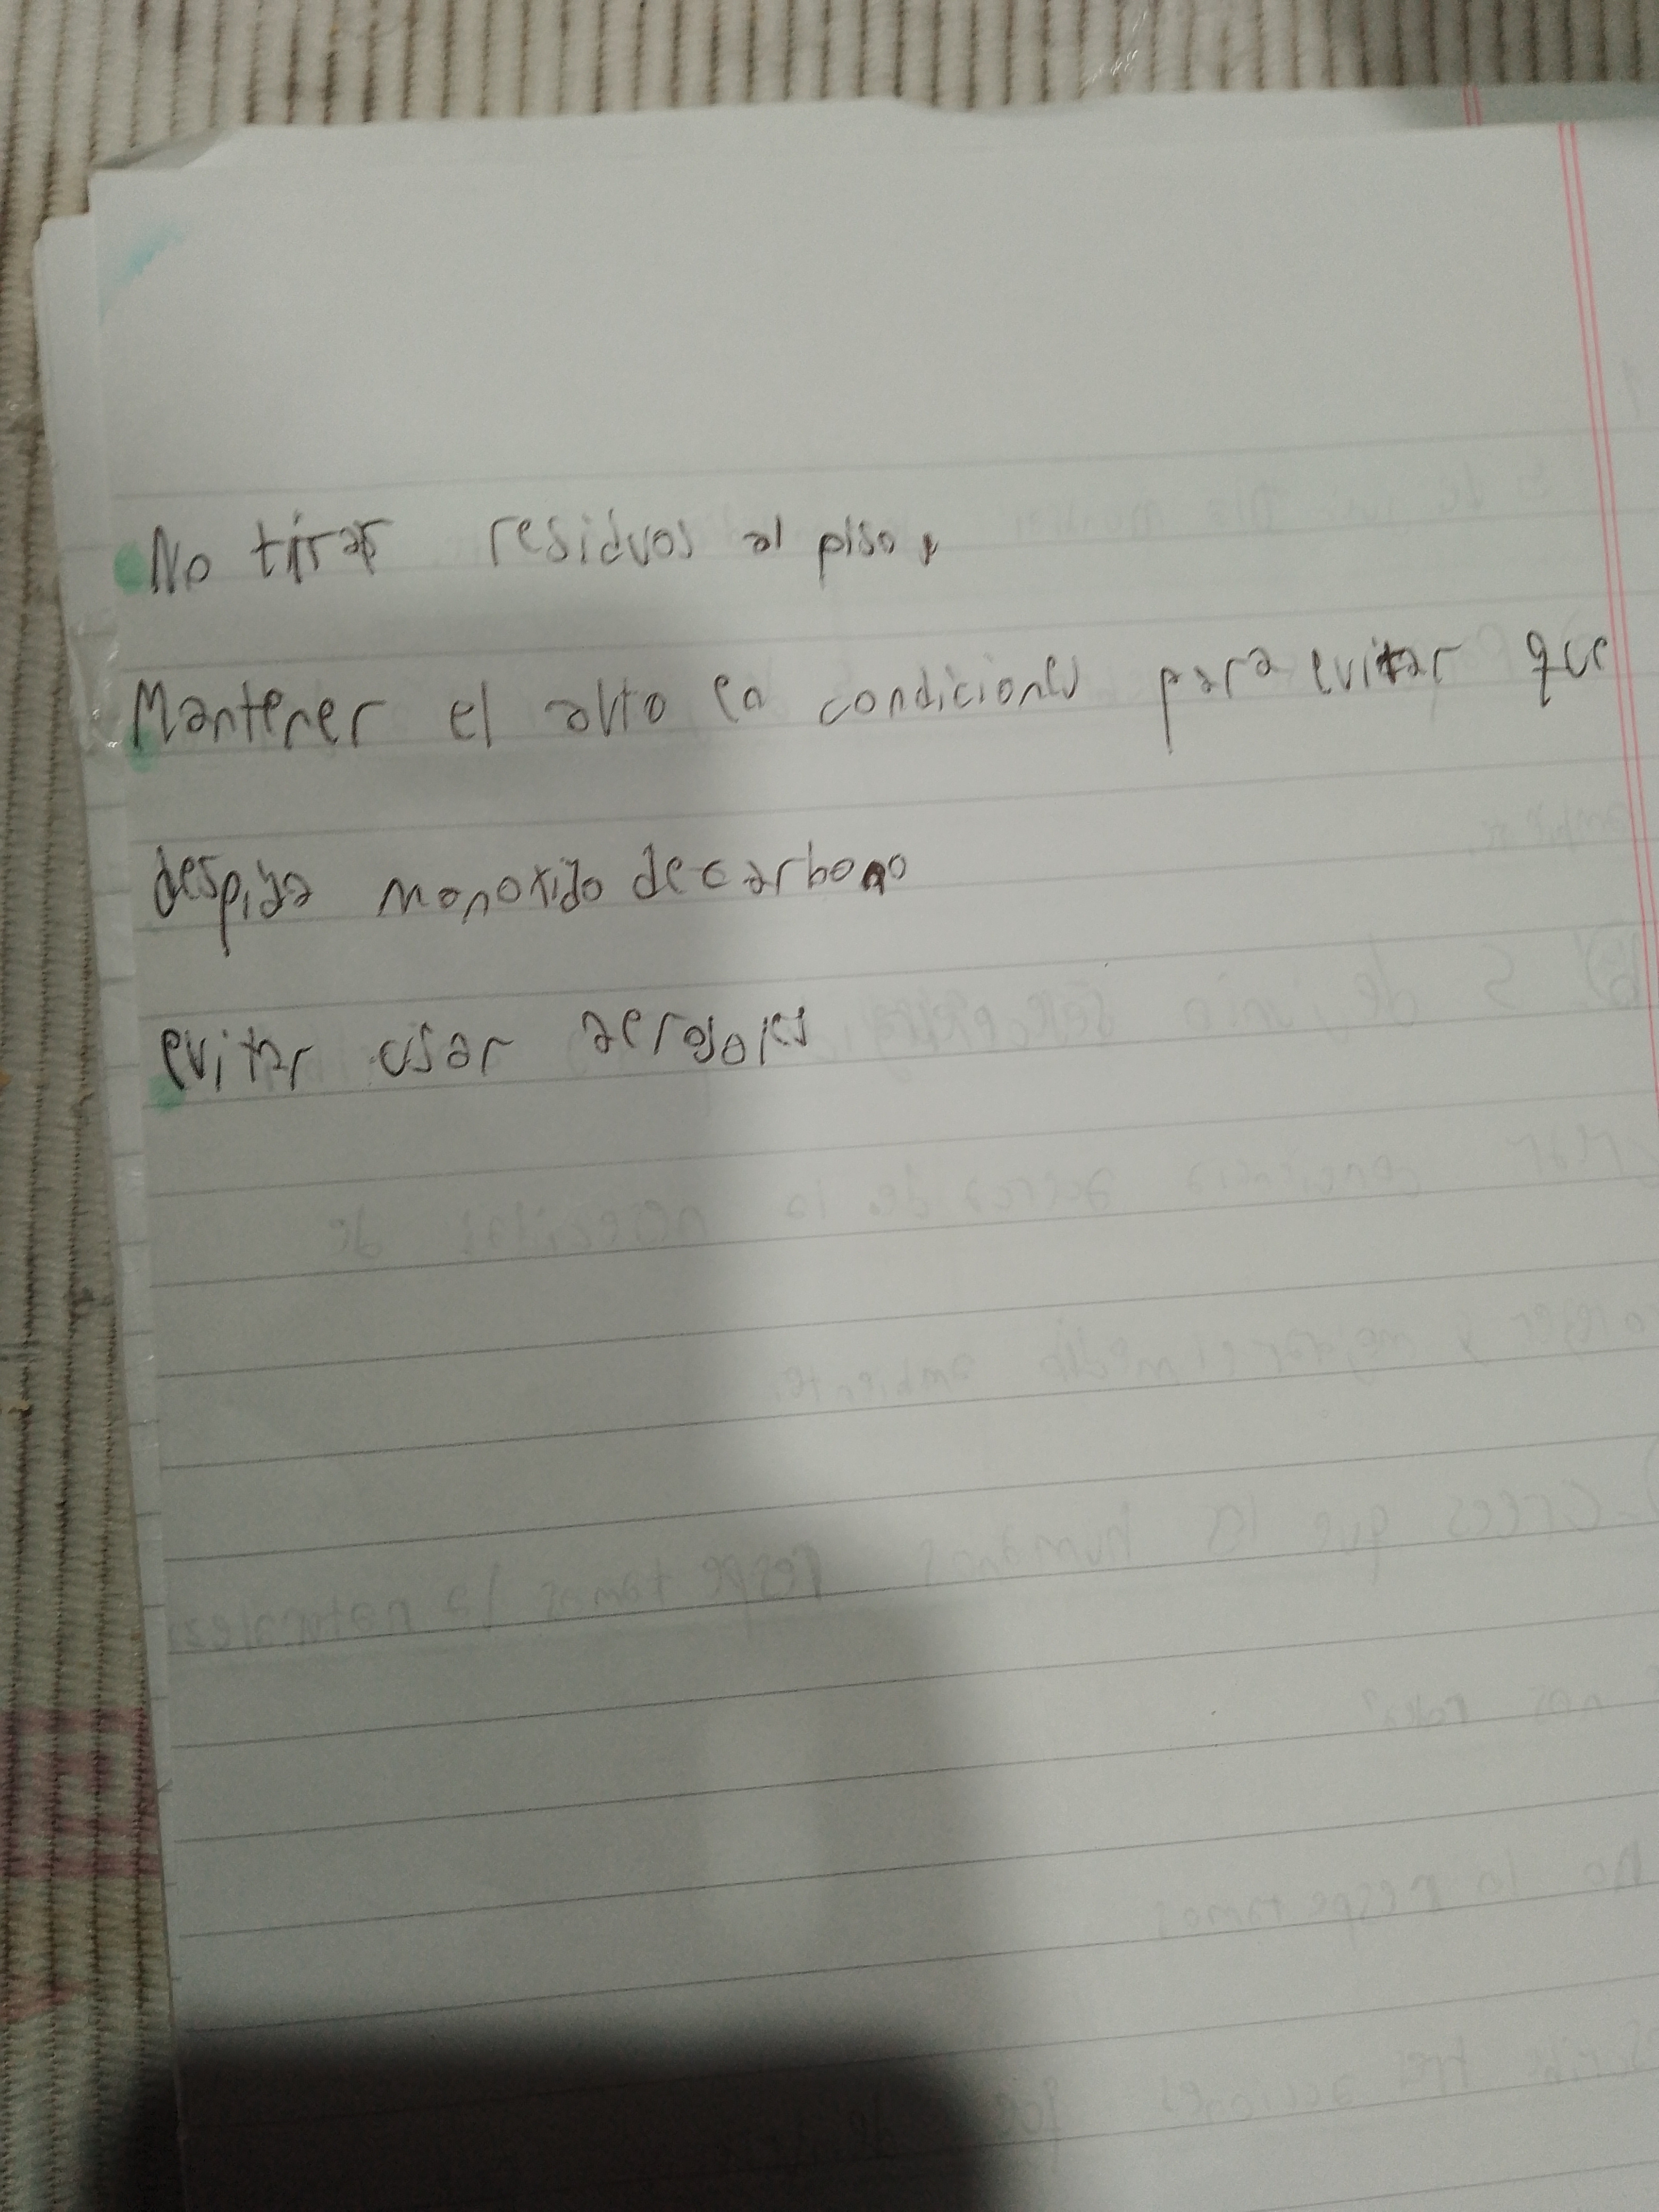 No tirar residuos al piso.
Mantener el auto en condiciones para evitar que
despida monoxido de carbono
evitar usar